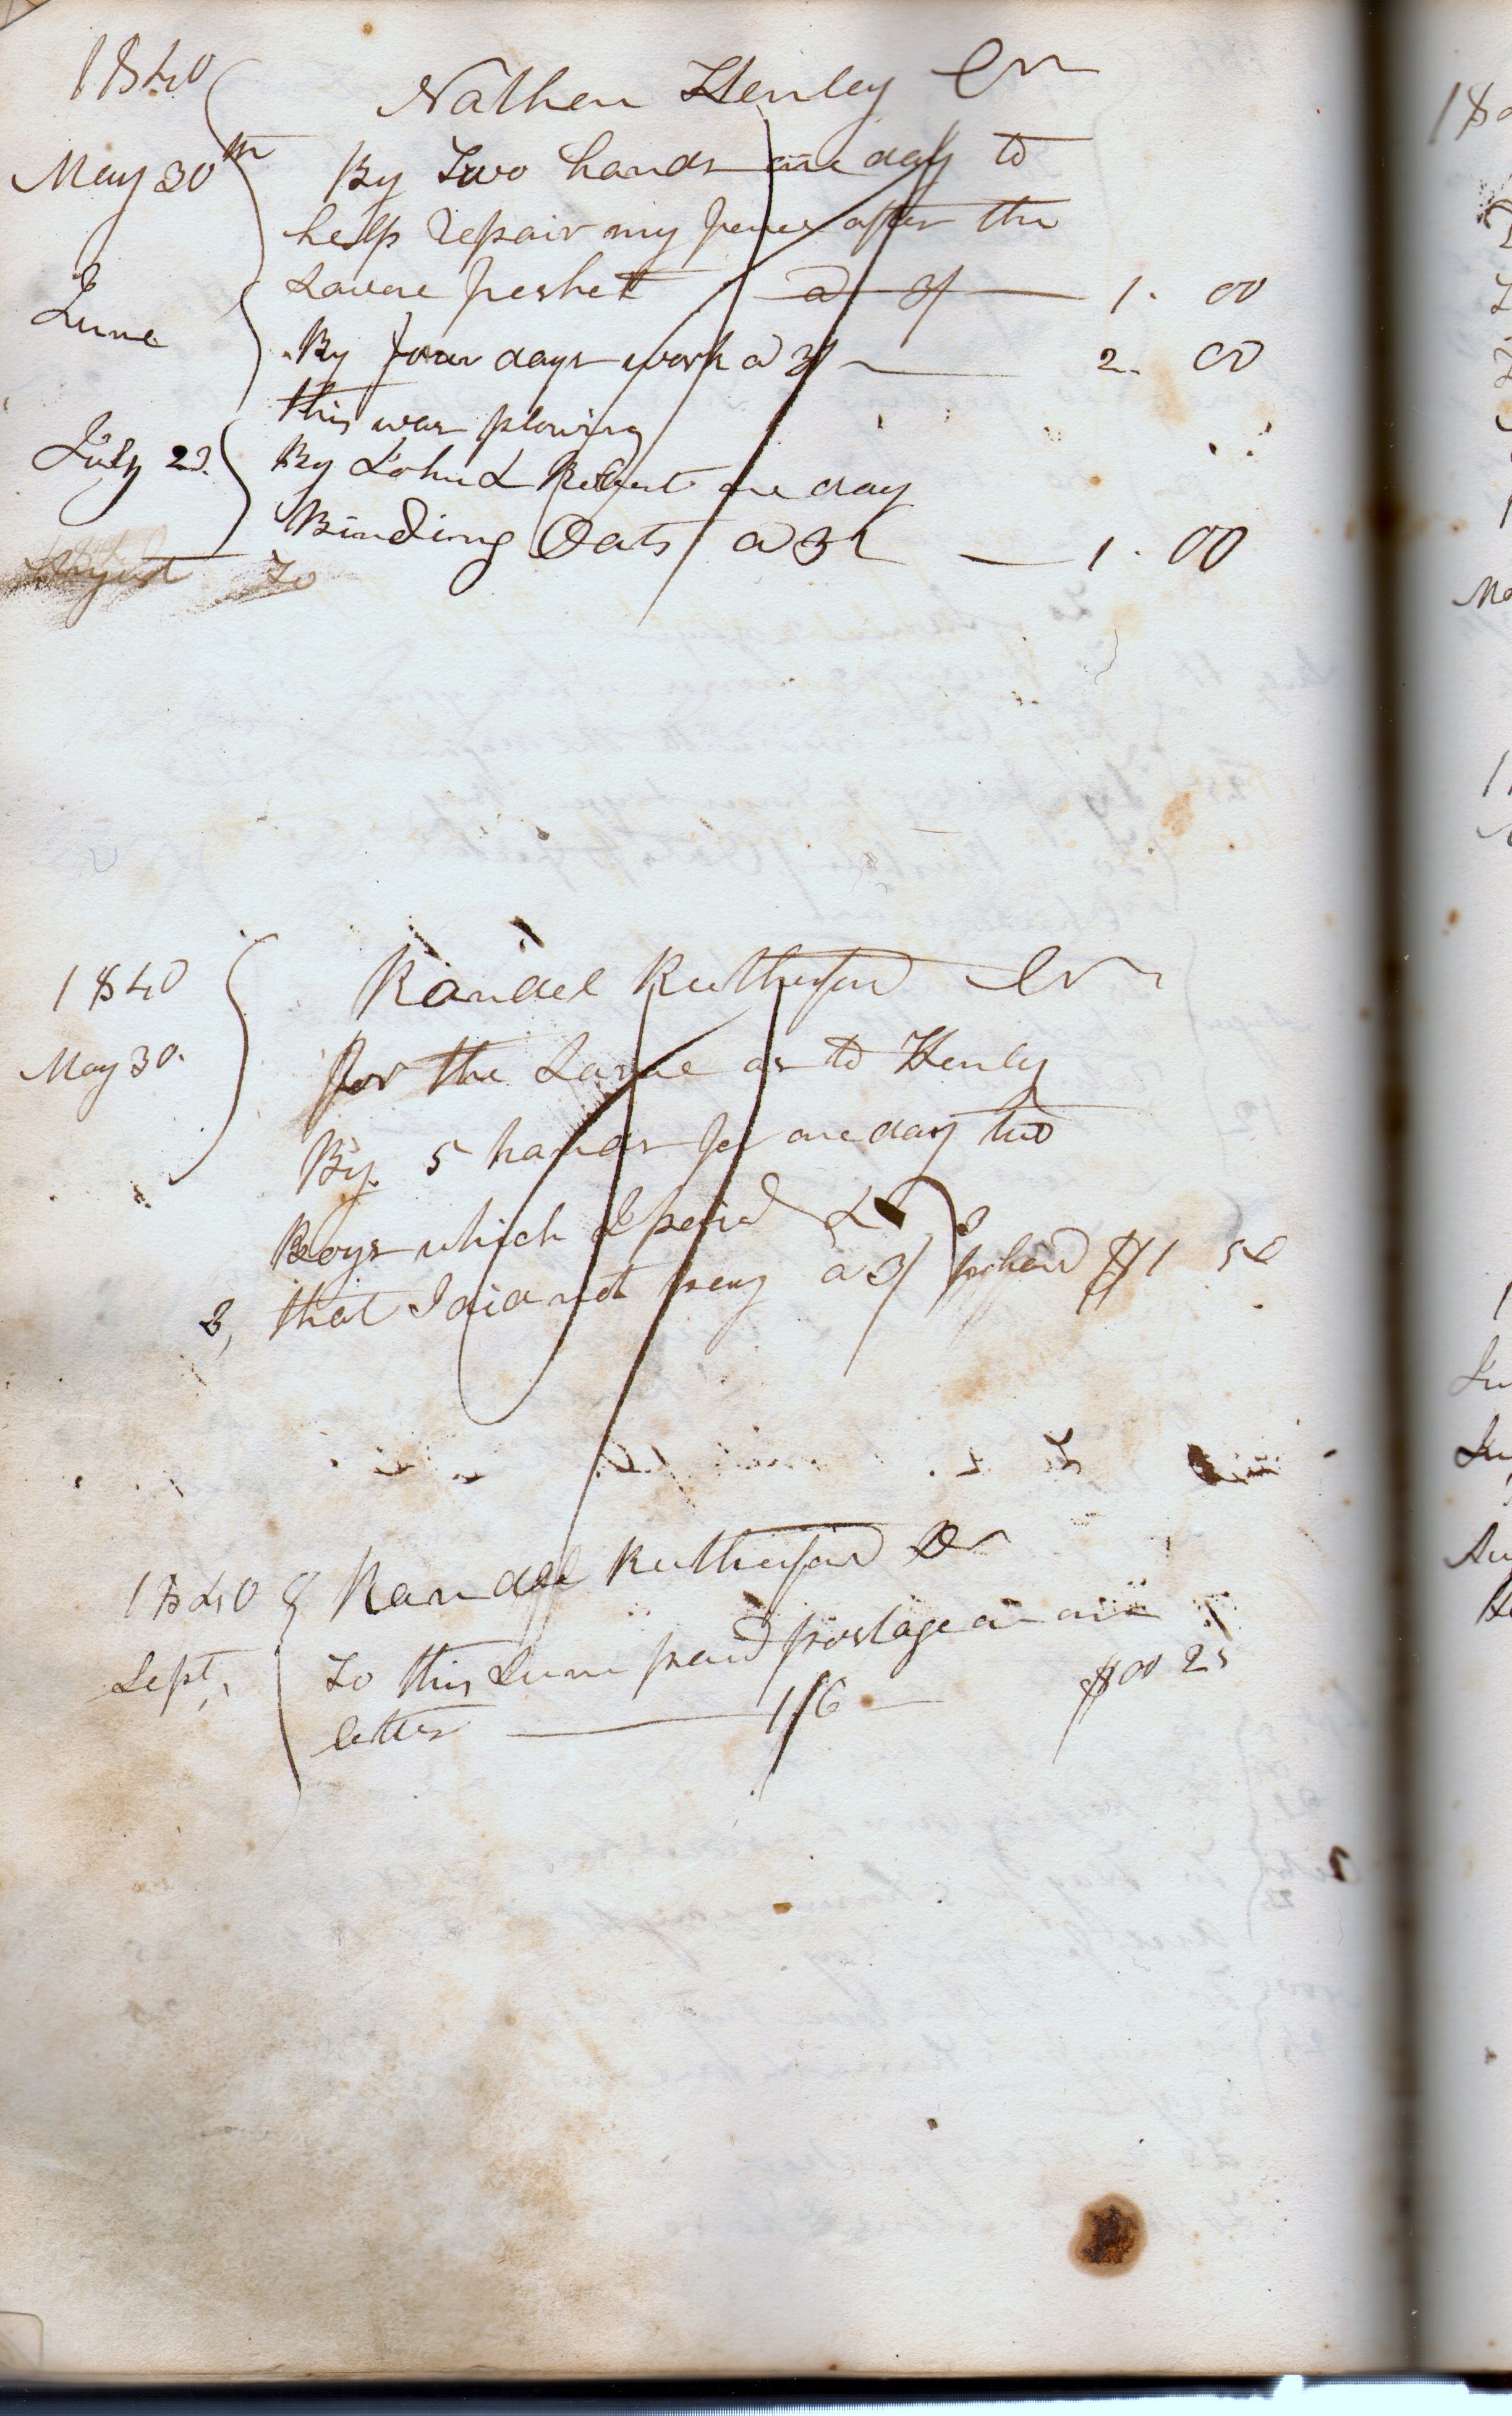 1840 Nathen Henley Cr
May 30th By Two hands one day to
help repair my fence after the
Savere freshet a 3/ 1. 00
June By four days work a 3/ 2. 00
this was plowing
July 22. By John & Robert one day
Binding Oats a 3/ 1. 00
August To
1840 Randel Rutherford Cr
May 30. for the Same as to Henley
By 5 hands for one day two
Boys which I paid &
3, that I did not pay a 3/ pr hand $1 50
1840 Randel Rutherford Dr
Sept, To this Sum paid postage on one
letter 1/6 $00 25
18